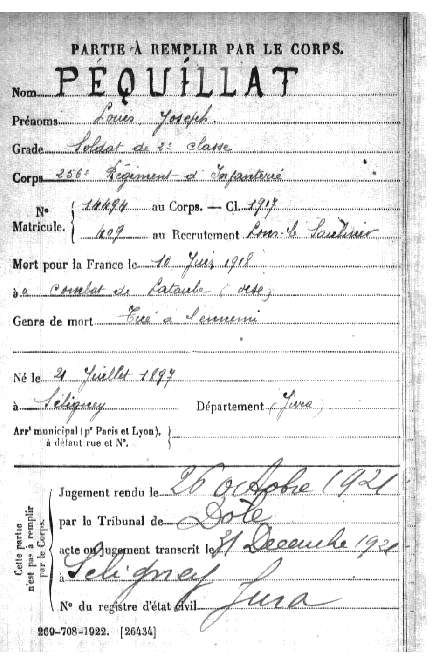 PARTIE À REMPLIR PAR LE CORPS.
Nom PÉQUILLAT
Prénoms Louis Joseph
Grade Soldat de 2e classe
Corps 256e Régiment d'Infanterie
N° 14494 au Corps. — Cl. 1917
Matricule. 409 au Recrutement Lons-le-Saunier
Mort pour la France le 10 Juin 1918
à combat de (Oise)
Genre de mort Tué à l'ennemi
Né le 21 Juillet 1897
à Séligney Département (Jura)
Arrt municipal (pr Paris et Lyon),
à défaut rue et N°.
Cette partie
n'est pas à remplir
par le Corps.
Jugement rendu le 26 octobre 1921
par le Tribunal de Dôle
acte ou jugement transcrit le 31 Decembre 1921
à Séligney
N° du registre d'état civil Jura
269-708-1922. [26434]